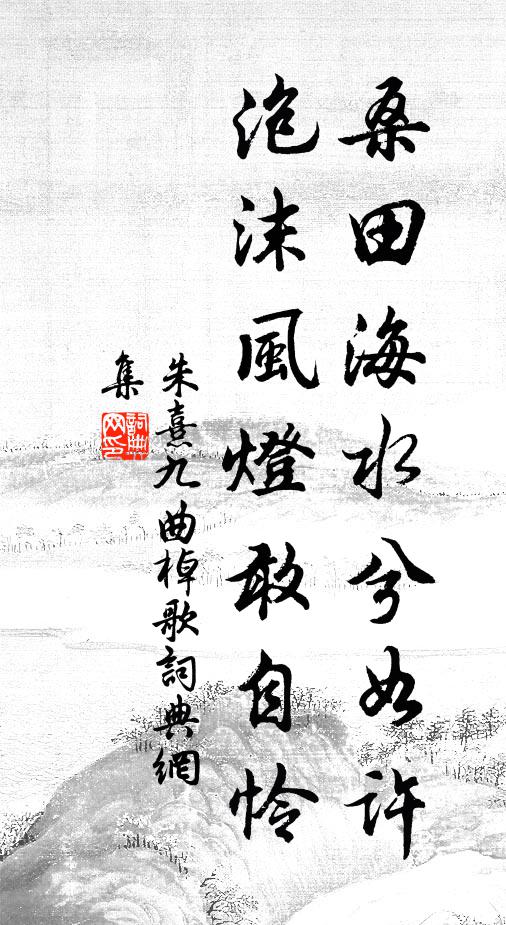 桑田海水兮如許
泡沫風燈敢自怜
朱熹九曲棹歌詞典網
集
詞典网印